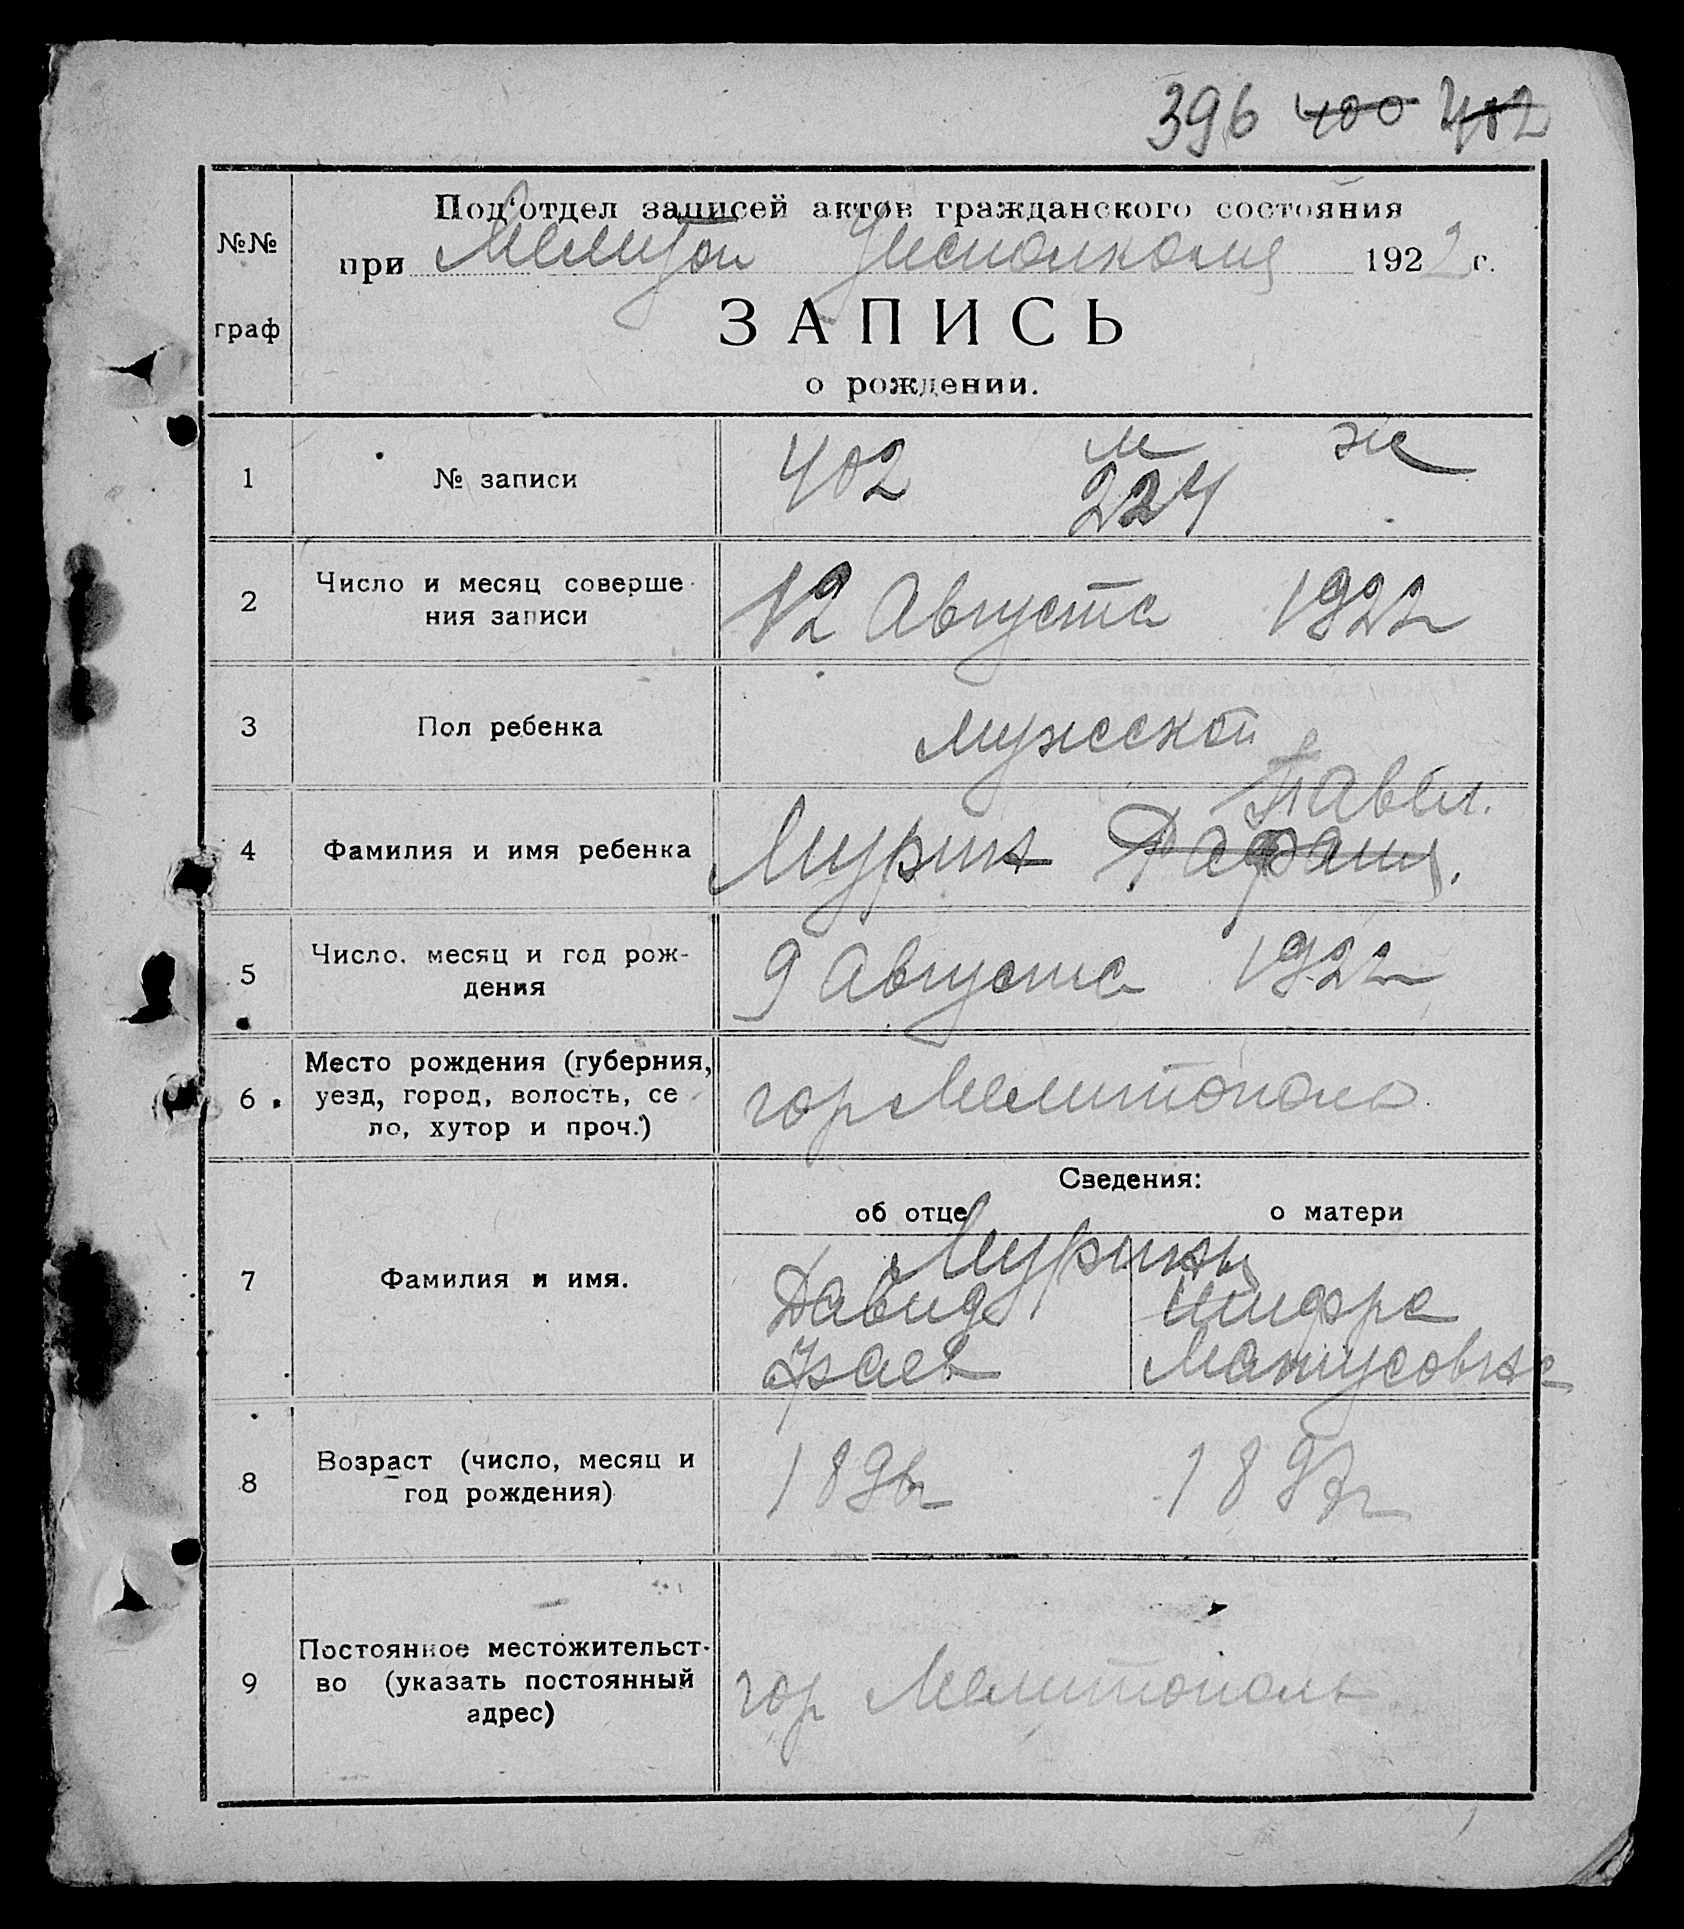 396 400 402
Под'отдел записей актов гражданского состояния
№№
при Мелитоп Уисполкоме 1922 г.
граф
ЗАПИСЬ
о рождении.
1 № записи 402 м 224 ж
2 Число и месяц соверше
ния записи 12 Августа 1922
3 Пол ребенка мужской
Павел.
4 Фамилия и имя ребенка Мурин
5 Число, месяц и год рож-
дения 9 Августа 1922
6 Место рождения (губерния,
уезд, город, волость, се
ло, хутор и проч.) гор Мелитополь
Сведения:
об отце о матери
Мурины
7 Фамилия и имя. Давид Шифра
Израев Матусовна
8 Возраст (число, месяц и
год рождения) 1896 1897
9 Постоянное местожительст-
во (указать постоянный
адрес) гор Мелитополь